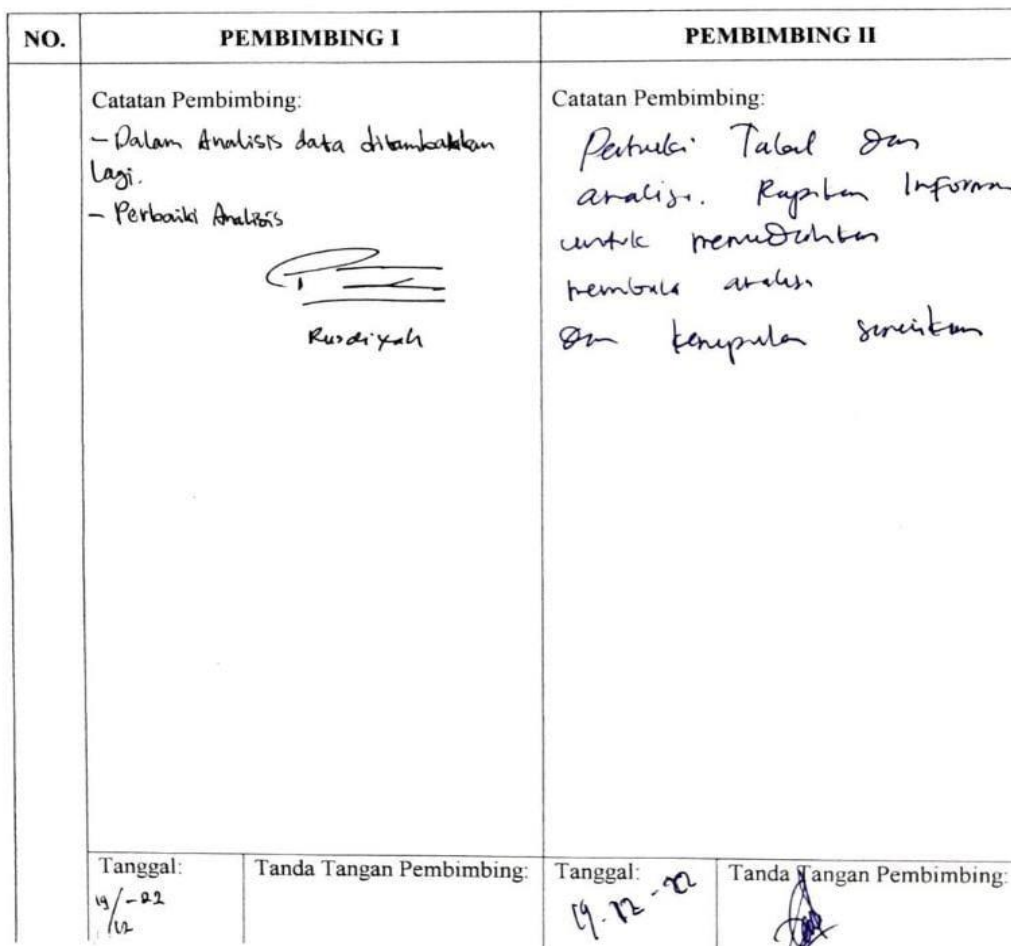 NO.
PEMBIMBING I
PEMBIMBING II
Catatan Pembimbing:
- Dalam Analisis data ditambahkan
lagi.
- Perbaiki Analisis
Rusdiyah
Catatan Pembimbing:
Tabel dan
analisis. Rapikan Inform
untuk memudahkan
membaca analisis
dan kesimpulan
Tanggal:
19/12-22
Tanda Tangan Pembimbing:
Tanggal:
19-12-22
Tanda Tangan Pembimbing: